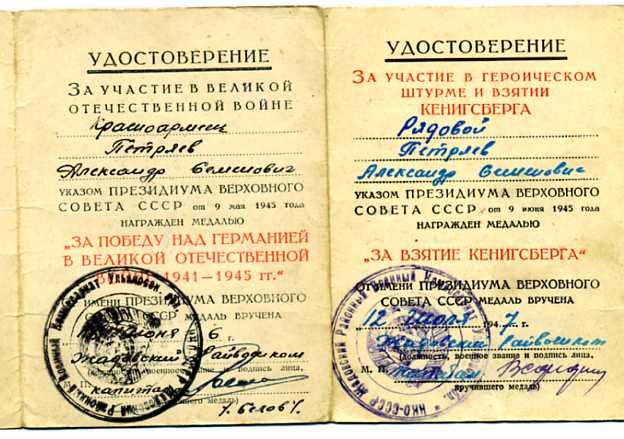 УДОСТОВЕРЕНИЕ
ЗА УЧАСТИЕ В ВЕЛИКОЙ
ОТЕЧЕСТВЕННОЙ ВОЙНЕ
Красноармеец
Петряев
Александр Семенович
УКАЗОМ ПРЕЗИДИУМА ВЕРХОВНОГО
СОВЕТА СССР от 9 мая 1945 года
НАГРАЖДЕН МЕДАЛЬЮ
„ЗА ПОБЕДУ НАД ГЕРМАНИЕЙ
В ВЕЛИКОЙ ОТЕЧЕСТВЕННОЙ
1941—1945 гг."
ИМЕНИ ПРЕЗИДИУМА ВЕРХОВНОГО
СОВЕТА СССР МЕДАЛЬ ВРУЧЕНА
6 г.
Жадовский Райвоенком
капитан
/Белов/
УДОСТОВЕРЕНИЕ
ЗА УЧАСТИЕ В ГЕРОИЧЕСКОМ
ШТУРМЕ И ВЗЯТИИ
КЕНИГСБЕРГА
Рядовой
Петряев
Александр Семенович
УКАЗОМ ПРЕЗИДИУМА ВЕРХОВНОГО
СОВЕТА СССР от 9 июня 1945 года
НАГРАЖДЕН МЕДАЛЬЮ
„ЗА ВЗЯТИЕ КЕНИГСБЕРГА"
От имени ПРЕЗИДИУМА ВЕРХОВНОГО
СОВЕТА СССР МЕДАЛЬ ВРУЧЕНА
12 июля 1947 г.
Жадовский Райвоенком
(должность, военное звание и подпись лица,
М. П.
вручившего медаль)